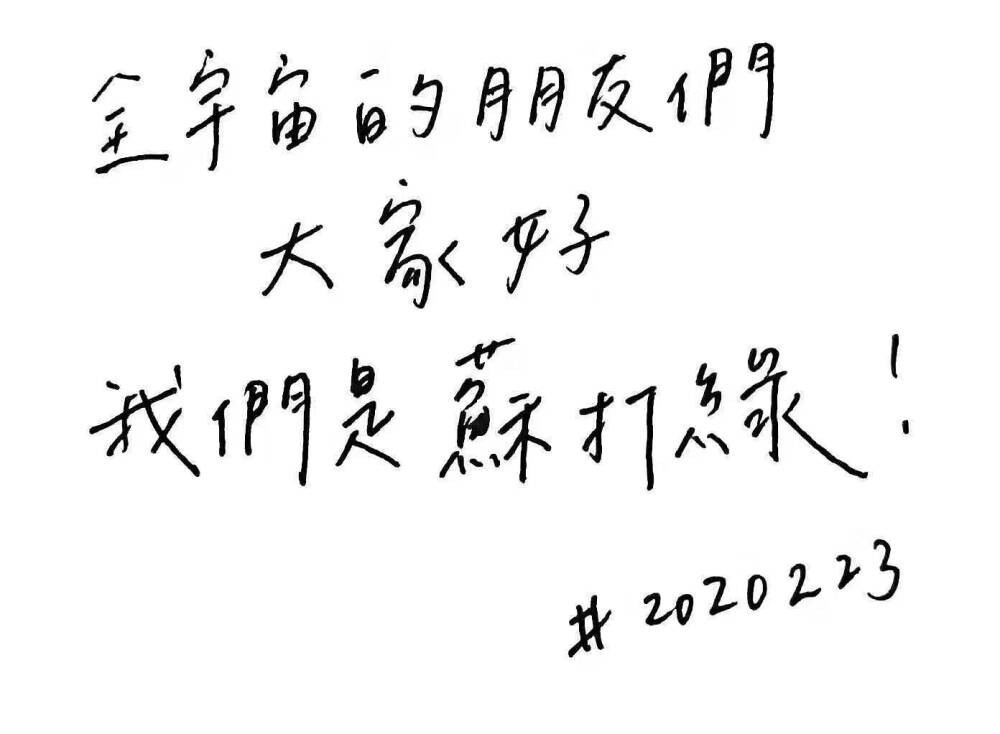 全宇宙的朋友們
大家好
我們是蘇打綠！
#2020223